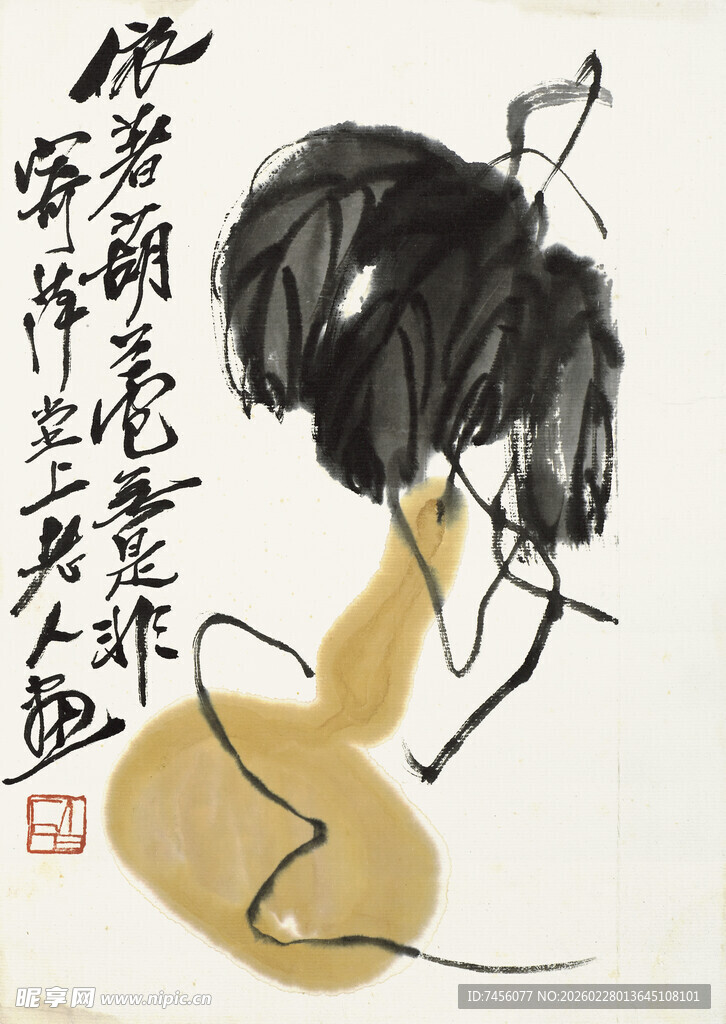 依著葫蘆無是非
寄萍堂上老人畫
昵享网 www.nipic.cn
ID:7456077 NO:20260228013645108101